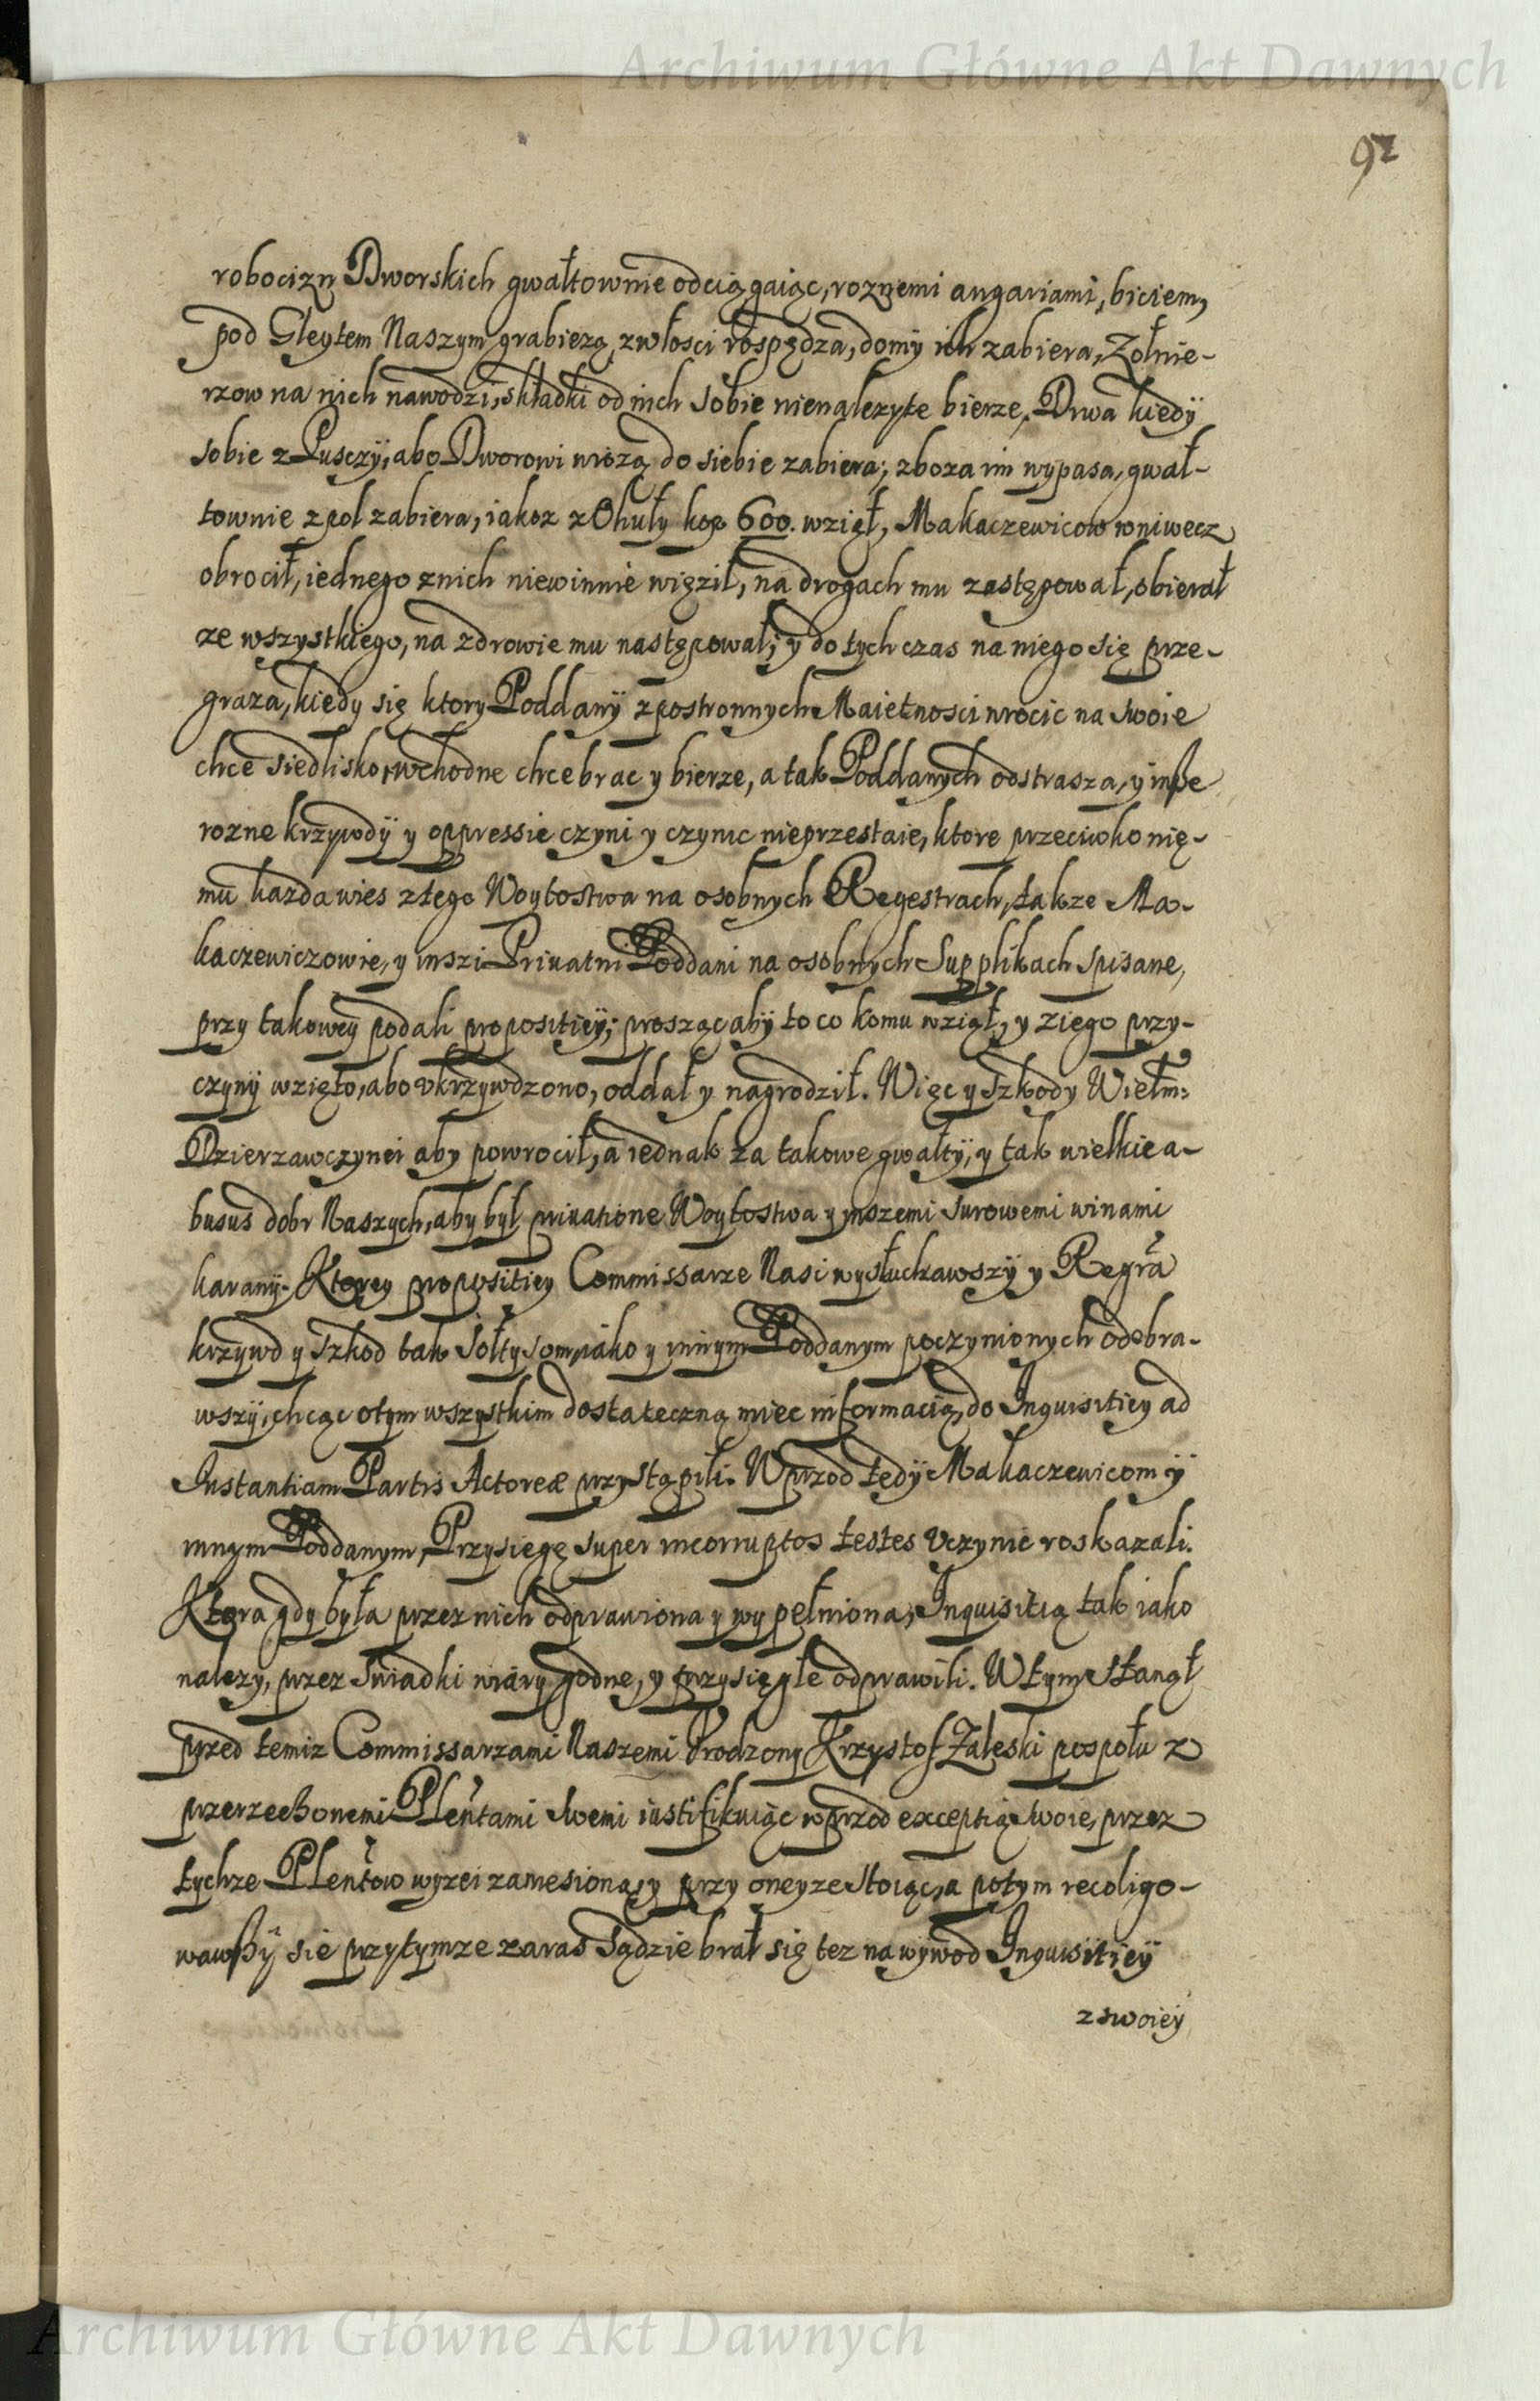 Archiwum Główne Akt Dawnych
92
robocizn Dworskich gwałtownie odciągaiąc, roznemi angariami, biciem,
pod Gleytem Naszym grabiezą, zwłosci rospędza, domy ich zabiera, Zołnie-
rzow na nich nawodzi, składki od nich sobie nienalezyte bierze, Drwa kiedy
sobie z Pusczy, abo Dworowi wiozą do siebie zabiera; zboza im wypasa, gwał-
townie z pol zabiera, iakoz z Ohuły kop 600. wziął, Makaczewicow wniwecz
obrocił, iednego znich niewinnie więził, na drogach mu zastępował, obierał
ze wszystkiego, na zdrowie mu następował, y do tych czas na niego się prze-
graza, kiedy się ktory Poddany z postronnych Maietnosci wrocic na swoie
chce siedlisko, wchodne chce brac y bierze, a tak Poddanych odstrasza, y insze
rozne krzywdy y oppressie czyni y czynic nieprzestaie, ktore przeciwko nię-
mu kazda wies z tego Woytostwa na osobnych Regestrach, takze Ma-
kaczewiczowie, y inszi Priuatni Poddani na osobnych Supplikach spisane,
przy takowey podali propositiey; prosząc aby to co komu wziął, y z iego przy-
czyny wzięto, abo vkrzywdzono, oddał y nagrodził. Więc y szkody Wielm:
Dzierzawczynei aby powrocił, a iednak za takowe gwałty, y tak wielkie a-
busus dobr Naszych, aby był priuatione Woytostwa y inszemi surowemi winami
karany. Ktorey propositiey Commissarze Nasi wysłuchawszy y Regra
krzywd y szkod tak sołtysom, iako y innym Poddanym poczynionych odebra-
wszy, chcąc otym wszystkim dostateczną miec informacią, do Inquisitiey ad
Instantiam Partis Actoreæ przystąpili. Wprzod tedy Makaczewicom y
innym Poddanym, Przysięgę super incorruptos testes vczynic roskazali.
Ktora gdy była przez nich odprawiona y wypełniona, Inquisitią tak iako
nalezy, przez swiadki wiary godne, y przysięgłe odprawili. W tym stanął
przed temiz Commissarzami Naszemi Vrodzony Krzysztof Zaleski pospołu z
przerzeczonemi Plentami swemi iustifikuiąc wprzod exceptią swoię, przez
tychze Plentow wyzei zaniesioną, y przy oneyze stoiąc, a potym recoligo-
wawszy sie przytymze zaras sądzie brał się tez na wywod Inquisitiey
z swoiey
Archiwum Główne Akt Dawnych